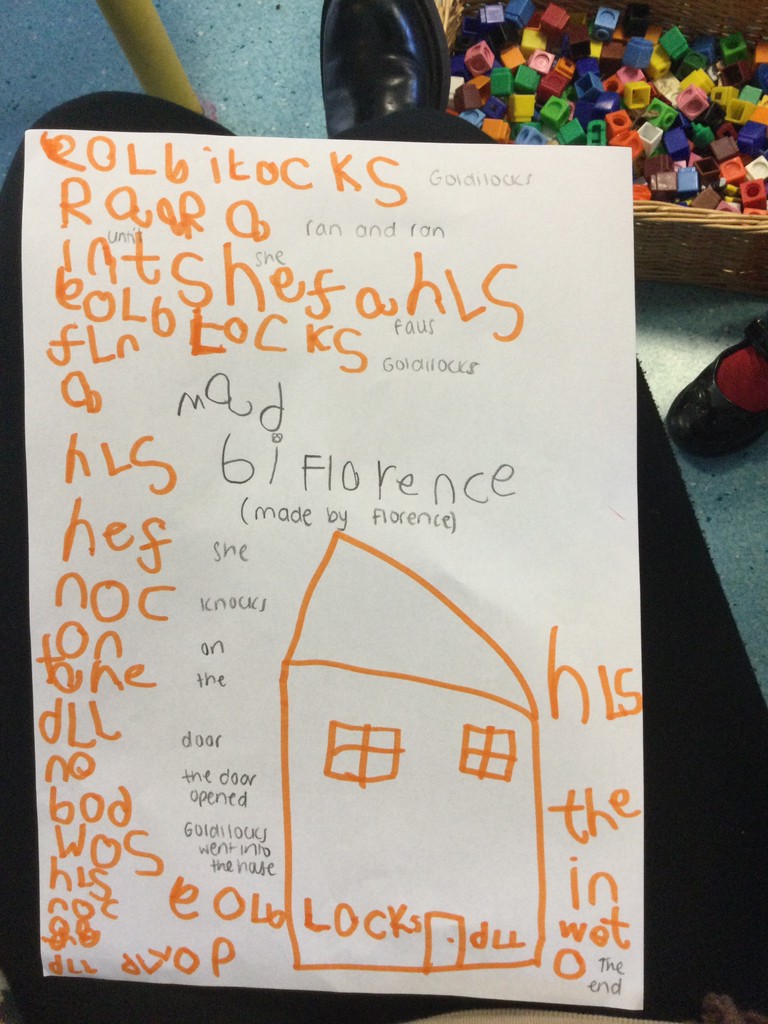 eOLbiLOCKS Goldilocks
R a aR a ran and ran
until she
intShefahLS
eOLbLOCKS faus
fLn Goldilocks
a
mad
bi Florence
(made by florence)
hLS
hef she
noc knocks
on on
the the
dLL door
no the door
bod opened
wos Goldilocks
went into
hLS the hase
not eOLbLOCKS dLL
dLL
hLS
the
in
wot
o The
end